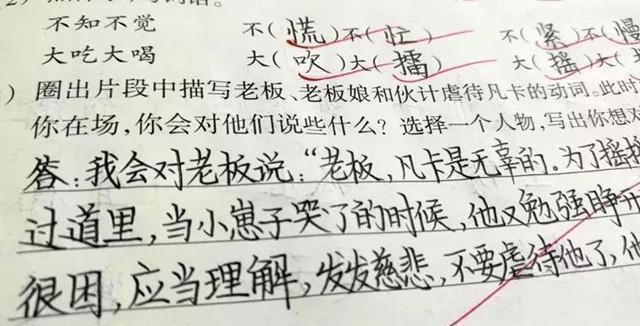 不知不觉 不(慌)不(忙) 不(紧)不(慢
大吃大喝 大(吹)大(擂) 大(摇)大(
)圈出片段中描写老板、老板娘和伙计虐待凡卡的动词。此时
你在场,你会对他们说些什么?选择一个人物,写出你想
答:我会对老板说:“老板,凡卡是无辜的。为了摇
过道里,当小崽子哭了的时候,他又勉强睁开
很困,应当理解,发发慈悲,不要虐待他了,他